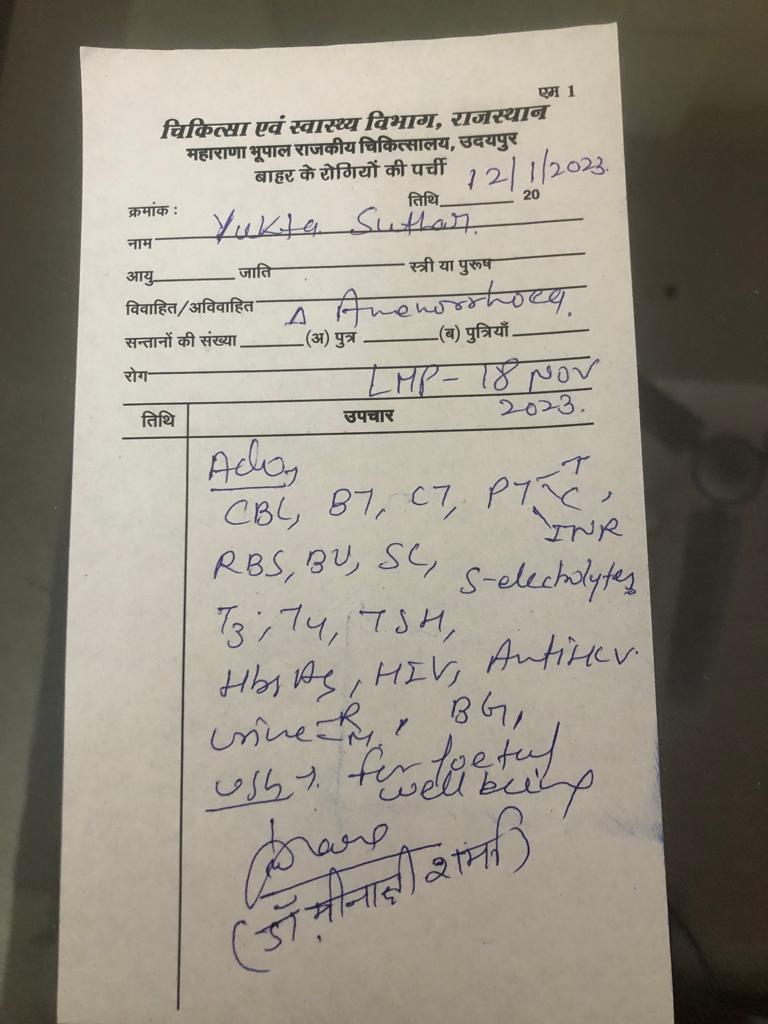 एम 1
चिकित्सा एवं स्वास्थ्य विभाग, राजस्थान
महाराणा भूपाल राजकीय चिकित्सालय, उदयपुर
बाहर के रोगियों की पर्ची
क्रमांक : तिथि 12/1/2023. 20
नाम Yukta Suthar.
आयु जाति स्त्री या पुरूष
विवाहित/अविवाहित Δ Amenorrhoea.
सन्तानों की संख्या (अ) पुत्र (ब) पुत्रियाँ
रोग LMP - 18 NOV
2023.
तिथि उपचार
Adv,
CBC, BT, CT, PT T C, INR
RBS, BU, SC, S-electrolytes
T3, T4, TSH,
HbsAg, HIV, AntiHCV.
Urine R M, BG,
USG for foetal
well being
(डॉ. मीनाक्षी शर्मा)